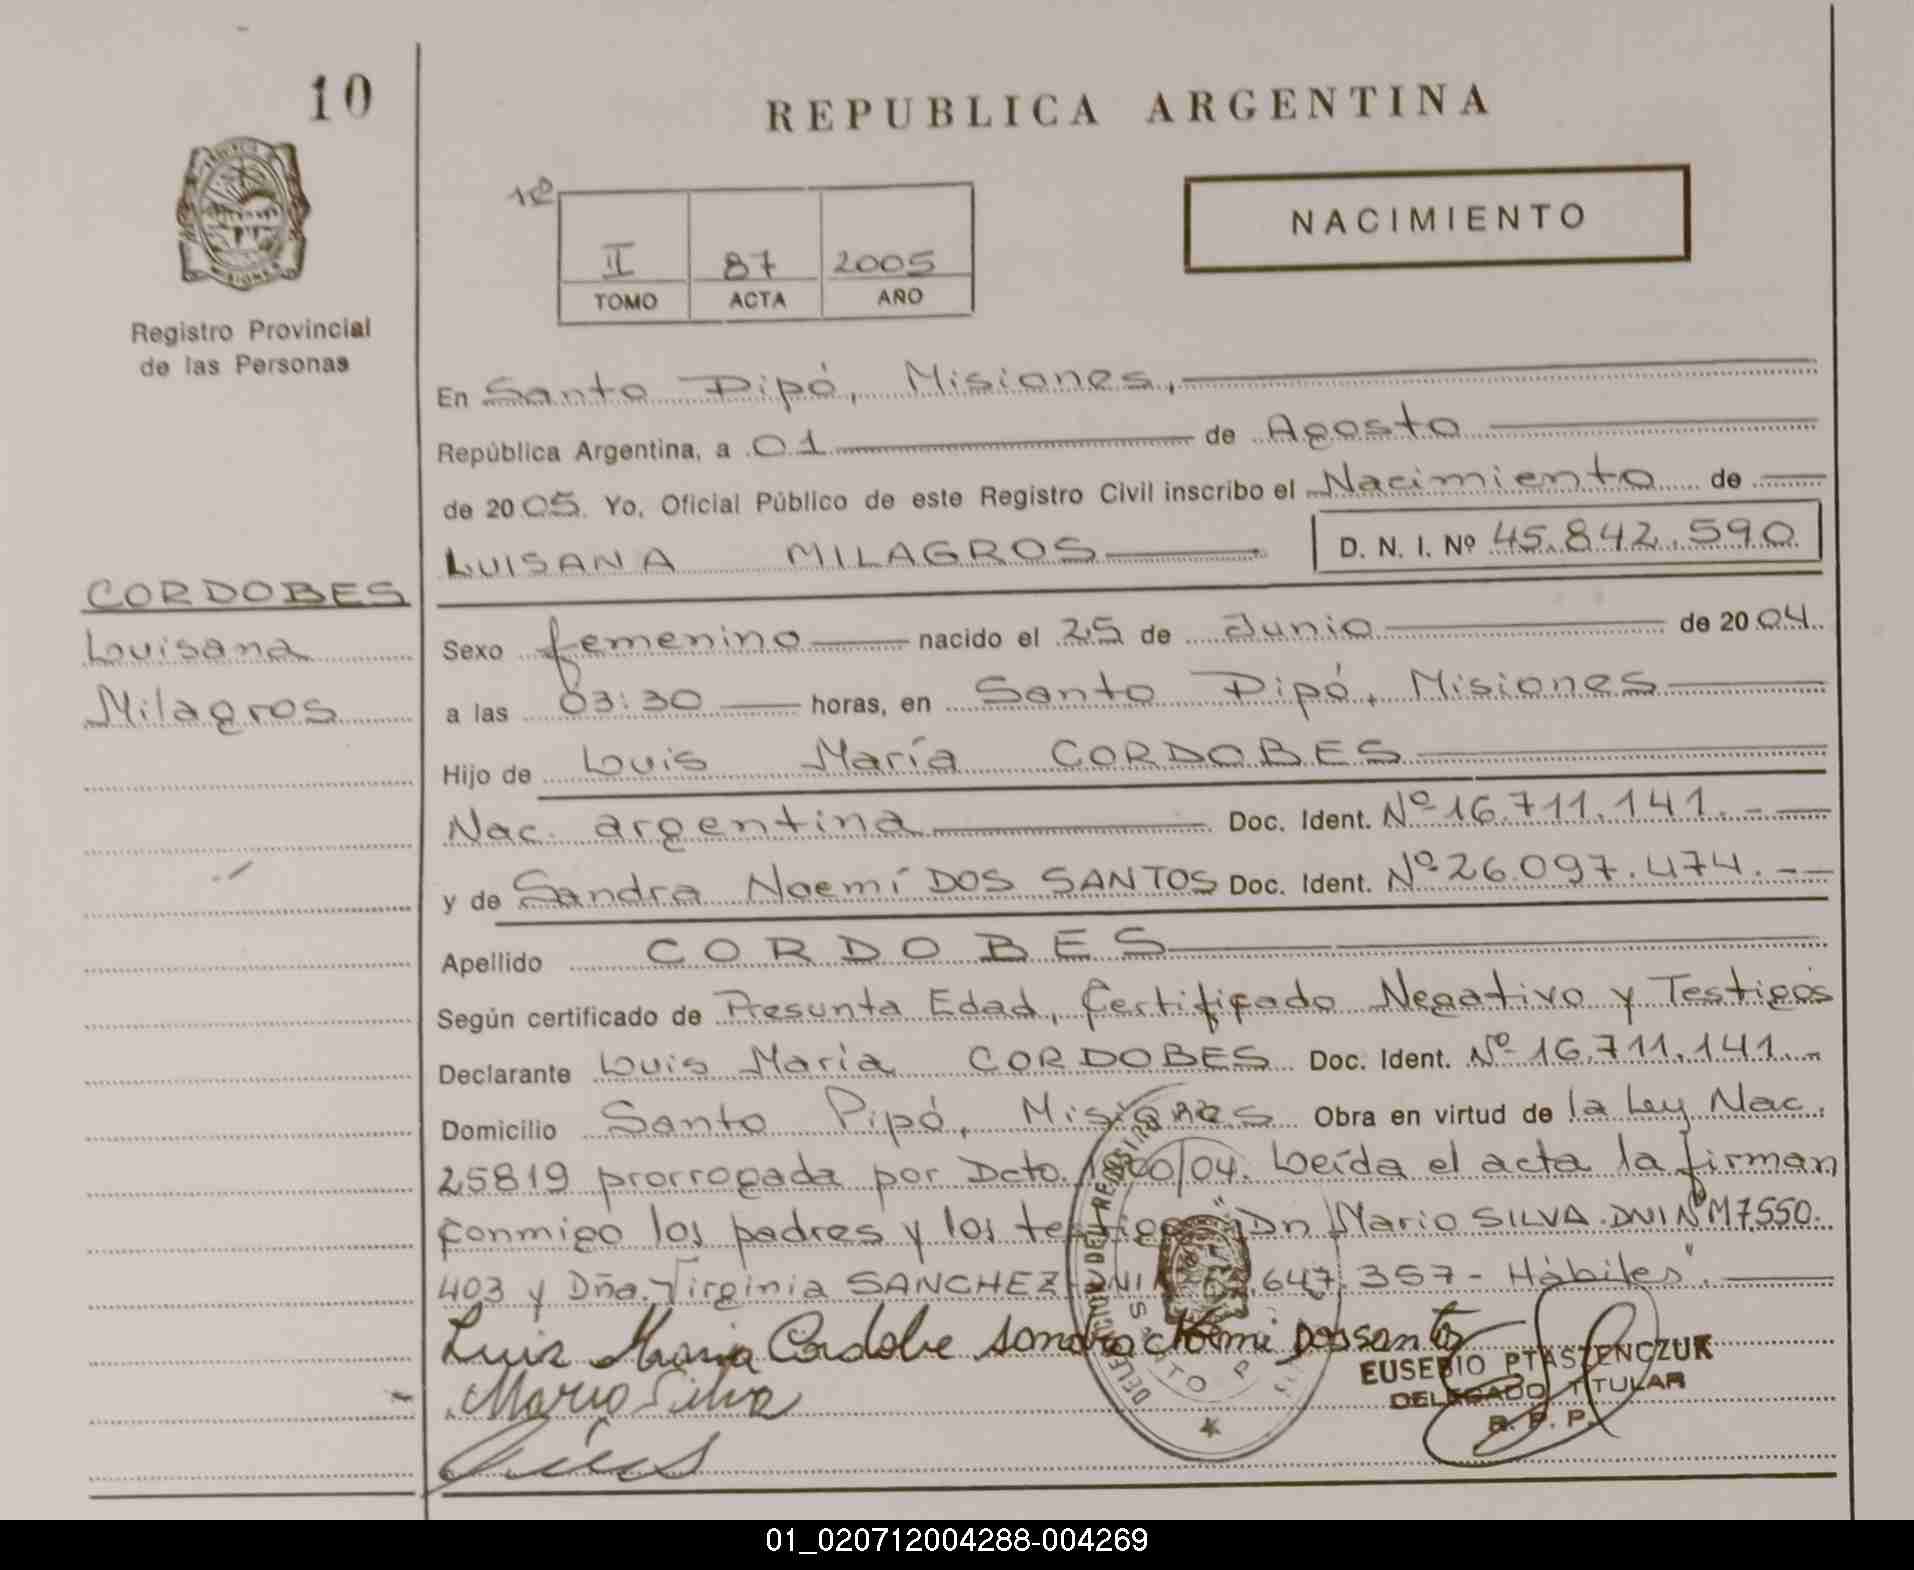 10
REPUBLICA ARGENTINA
MISIONES
Registro Provincial
de las Personas
1º
II 87 2005
TOMO ACTA AÑO
NACIMIENTO
En Santo Pipó, Misiones,
República Argentina, a 01 de Agosto
de 2005. Yo, Oficial Público de este Registro Civil inscribo el Nacimiento de
LUISANA MILAGROS D. N. I. Nº 45.842.590
CORDOBES
Luisana
Milagros
Sexo femenino nacido el 25 de Junio de 2004.
a las 03:30 horas, en Santo Pipó, Misiones
Hijo de Luis María CORDOBES
Nac. argentina Doc. Ident. Nº 16.711.141.-
y de Sandra Noemí DOS SANTOS Doc. Ident. Nº 26.097.474.--
Apellido CORDOBES
Según certificado de Presunta Edad, Certificado Negativo y Testigos
Declarante Luis María CORDOBES Doc. Ident. Nº 16.711.141.-
Domicilio Santo Pipó, Misiones Obra en virtud de la Ley Nac.
25819 prorrogada por Dcto. /04. Leída el acta la firman
conmigo los padres y los testigos Dn Mario SILVA. DNI Nº M7550.
403 y Dña. Virginia SANCHEZ DNI .647.357- Hábiles".
Luis Maria Cordobe Sandra Noemi Dos Santo
EUSEBIO PTASZENCZUK
DELEGADO TITULAR
R. P. P.
Mario Silva
DELEGACION DEL REGISTRO
SANTO
01_020712004288-004269